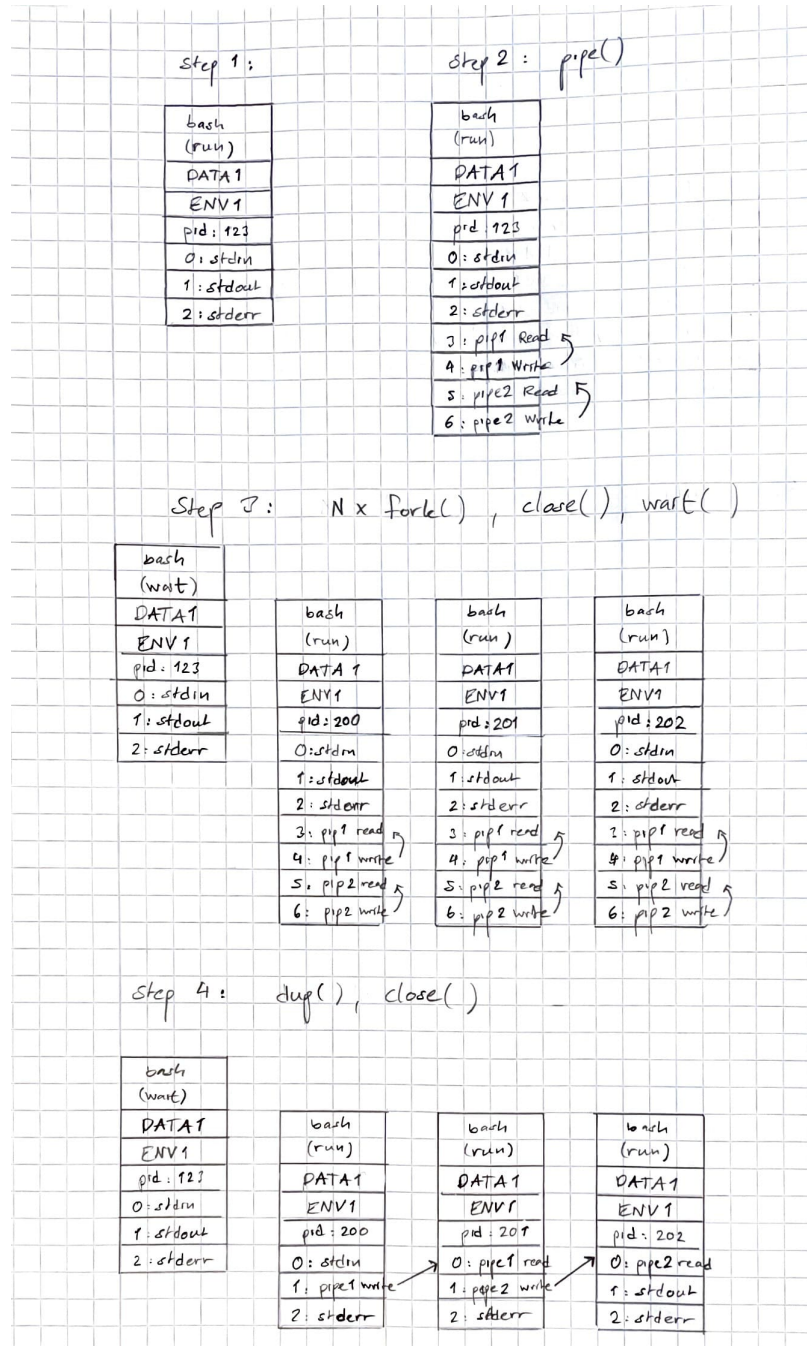 Step 1:
bash
(run)
DATA1
ENV1
pid: 123
0: stdin
1: stdout
2: stderr
Step 2: pipe()
bash
(run)
DATA1
ENV1
pid 123
0: stdin
1: stdout
2: stderr
3: pip1 Read
4: pip1 Write
5: pipe2 Read
6: pipe2 Write
Step 3: N x fork(), close(), wait()
bash
(wait)
DATA1
ENV1
pid: 123
0: stdin
1: stdout
2: stderr
bash
(run)
DATA1
ENV1
pid: 200
0: stdin
1: stdout
2: stderr
3: pip1 read
4: pip1 write
5: pip2 read
6: pip2 write
bash
(run)
DATA1
ENV1
pid: 201
0: stdin
1: stdout
2: stderr
3: pip1 read
4: pip1 write
5: pip2 read
6: pip2 write
bash
(run)
DATA1
ENV1
pid: 202
0: stdin
1: stdout
2: stderr
3: pip1 read
4: pip1 write
5: pip2 read
6: pip2 write
Step 4: dup(), close()
bash
(wait)
DATA1
ENV1
pid: 123
0: stdin
1: stdout
2: stderr
bash
(run)
DATA1
ENV1
pid: 200
0: stdin
1: pipe1 write
2: stderr
bash
(run)
DATA1
ENV1
pid: 201
0: pipe1 read
1: pipe2 write
2: stderr
bash
(run)
DATA1
ENV1
pid: 202
0: pipe2 read
1: stdout
2: stderr